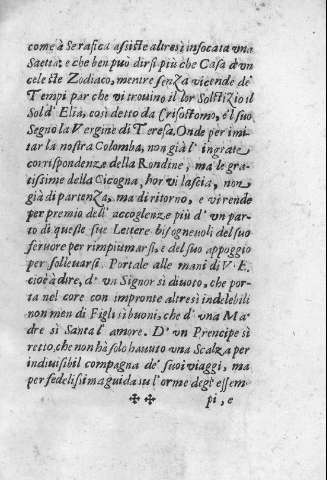 come à Serafica assiste altresì infocata vna
Saetta; e che ben può dirsi più che Casa d'vn
celeste Zodiaco, mentre senza vicende de'
Tempi par che vi trouino il lor Solstizio il
Sol d'Elia, così detto da Crisostomo, e'l suo
Segno la Vergine di Teresa. Onde per imi-
tar la nostra Colomba, non già l'ingrate
corrispondenze della Rondine, ma le gra-
tissime della Cicogna, hor vi lascia, non
già di partenza, ma di ritorno, e vi rende
per premio dell'accoglienze più d'vn par-
to di queste sue Lettere bisogneuoli del suo
feruore per rimpiumarsi, e del suo appoggio
per solleuarsi. Portale alle mani di V. E.
cioè à dire, d'vn Signor sì diuoto, che por-
ta nel core con impronte altresì indelebili
non men di Figli sì buoni, che d'vna Ma-
dre sì Santa l'amore. D'vn Prencipe sì
retto, che non hà solo hauuto vna Scalza per
indiuisibil compagna de' suoi viaggi, ma
per fedelissima guida sù l'orme degl'essem-
pi, e